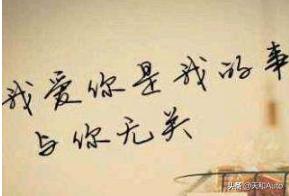 我爱你是我的事
与你无关
头条@天和Auto